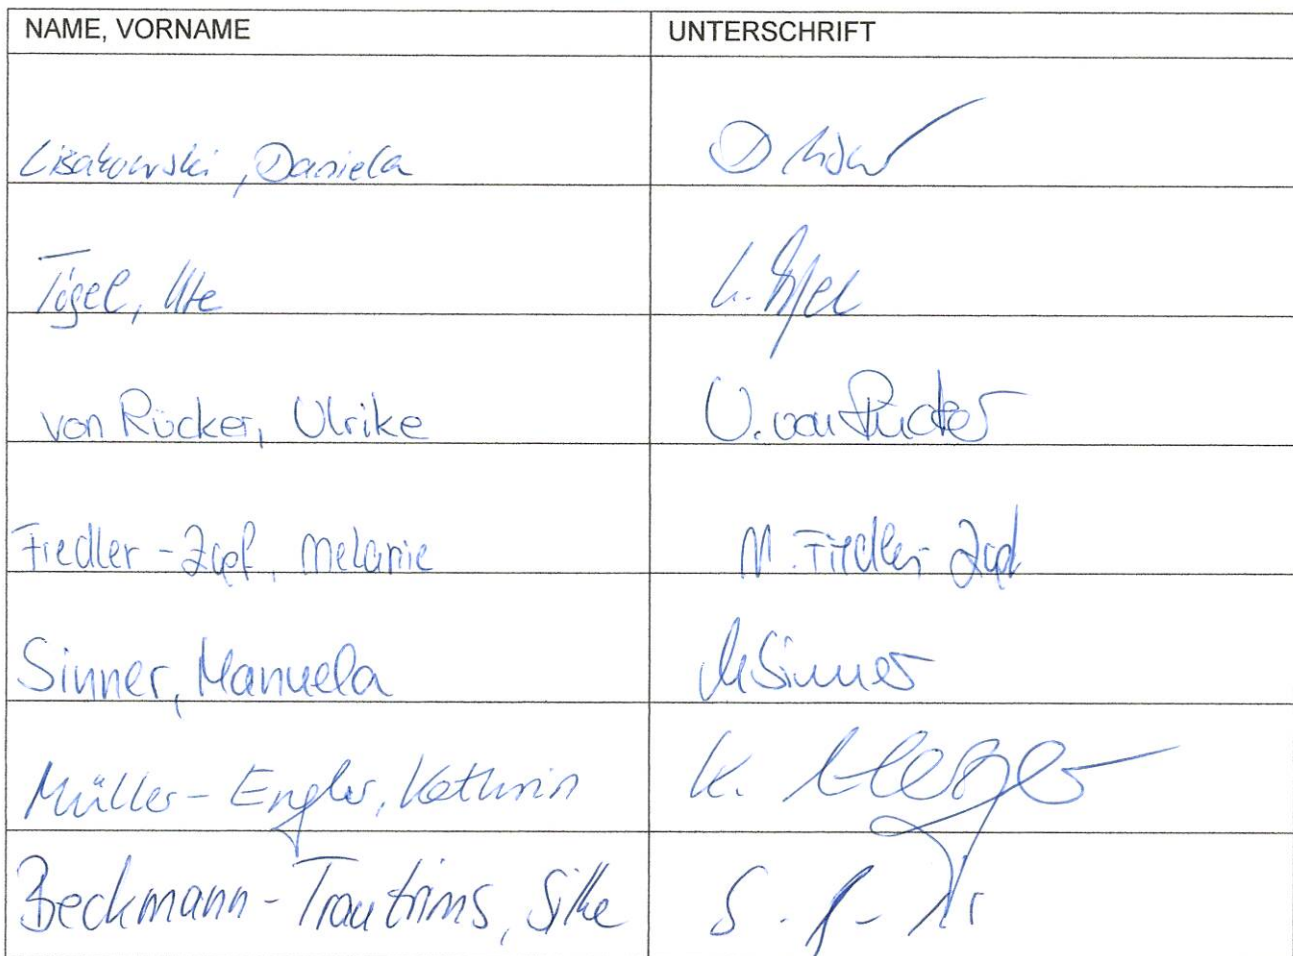 NAME, VORNAME UNTERSCHRIFT
Lisakowski, Daniela
Tögel, Ute
von Rücker, Ulrike U. von Rücker
Fiedler-Zapf, Melanie M. Fiedler-Zapf
Sinner, Manuela M Sinner
Müller-Engler, Kathrin K.
Beckmann-Trautrims, Silke S.